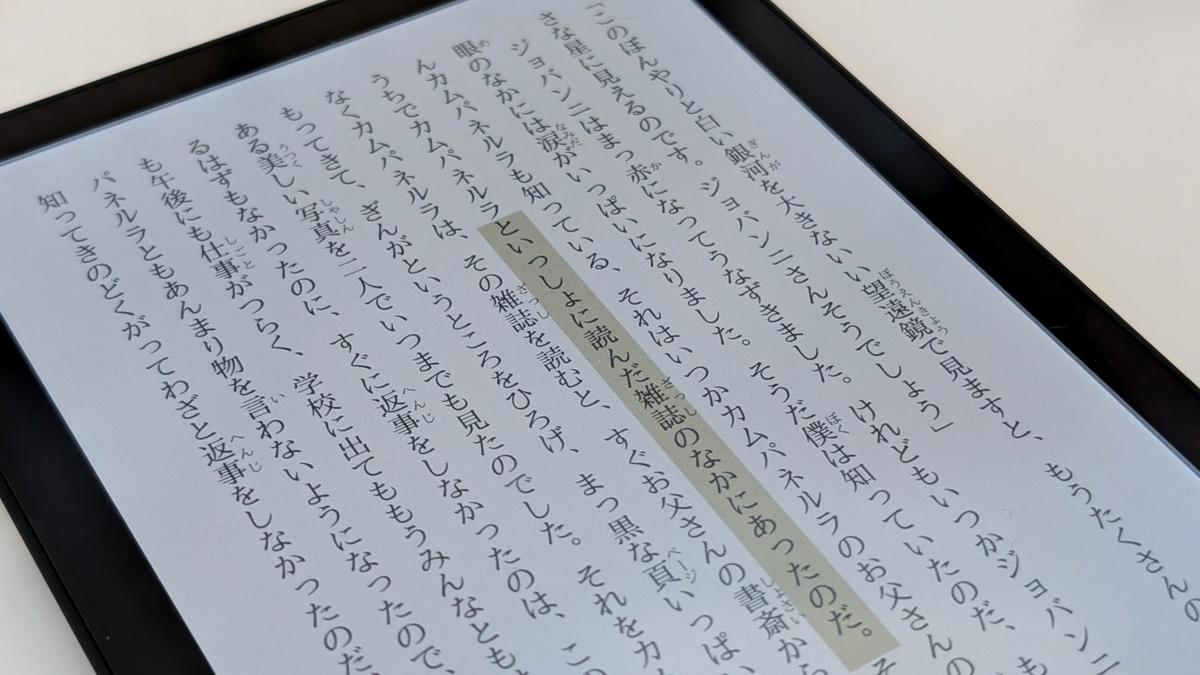 「このぼんやりと白い銀河を大きないい望遠鏡で見ますと、もうたくさんの
さな星に見えるのです。ジョバンニさんそうでしょう」
ジョバンニはまっ赤になってうなずきました。けれどもいつかジョバンニ
眼のなかには涙がいっぱいになりました。そうだ僕は知っていたのだ、も
んカムパネルラも知っている、それはいつかカムパネルラのお父さんの
うちでカムパネルラといっしょに読んだ雑誌のなかにあったのだ。そ
なくカムパネルラは、その雑誌を読むと、すぐお父さんの書斎から
もってきて、ぎんがというところをひろげ、まっ黒な頁いっぱい
ある美しい写真を二人でいつまでも見たのでした。それをカム
るはずもなかったのに、すぐに返事をしなかったのは、この
も午後にも仕事がつらく、学校に出てももうみんなとも
パネルラともあんまり物を言わないようになったので、
知ってきのどくがってわざと返事をしなかったのだ、